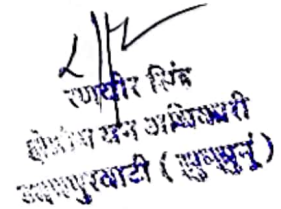 रणवीर सिंह
क्षेत्रीय वन अधिकारी
उदयपुरवाटी ( झुन्झुनूं )